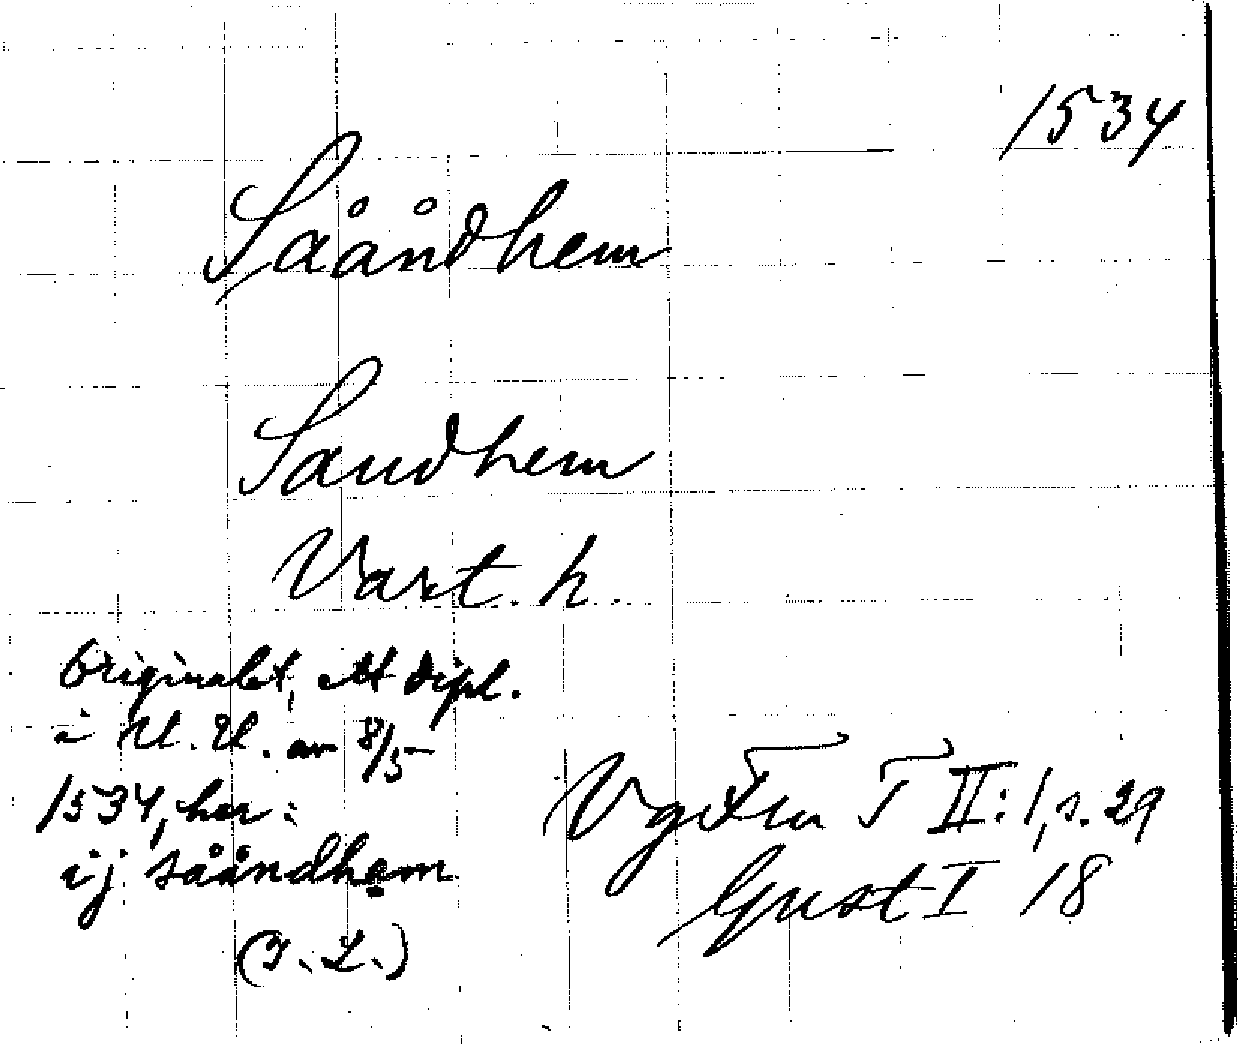 1534
Sååndhem
Sandhem
Vart. h.
Originalet, ett dipl.
i U. U. av 8/5
1534, har:
ij sååndhem
(I. L.)
VgFmT II: 1, s. 29
Gust I 18